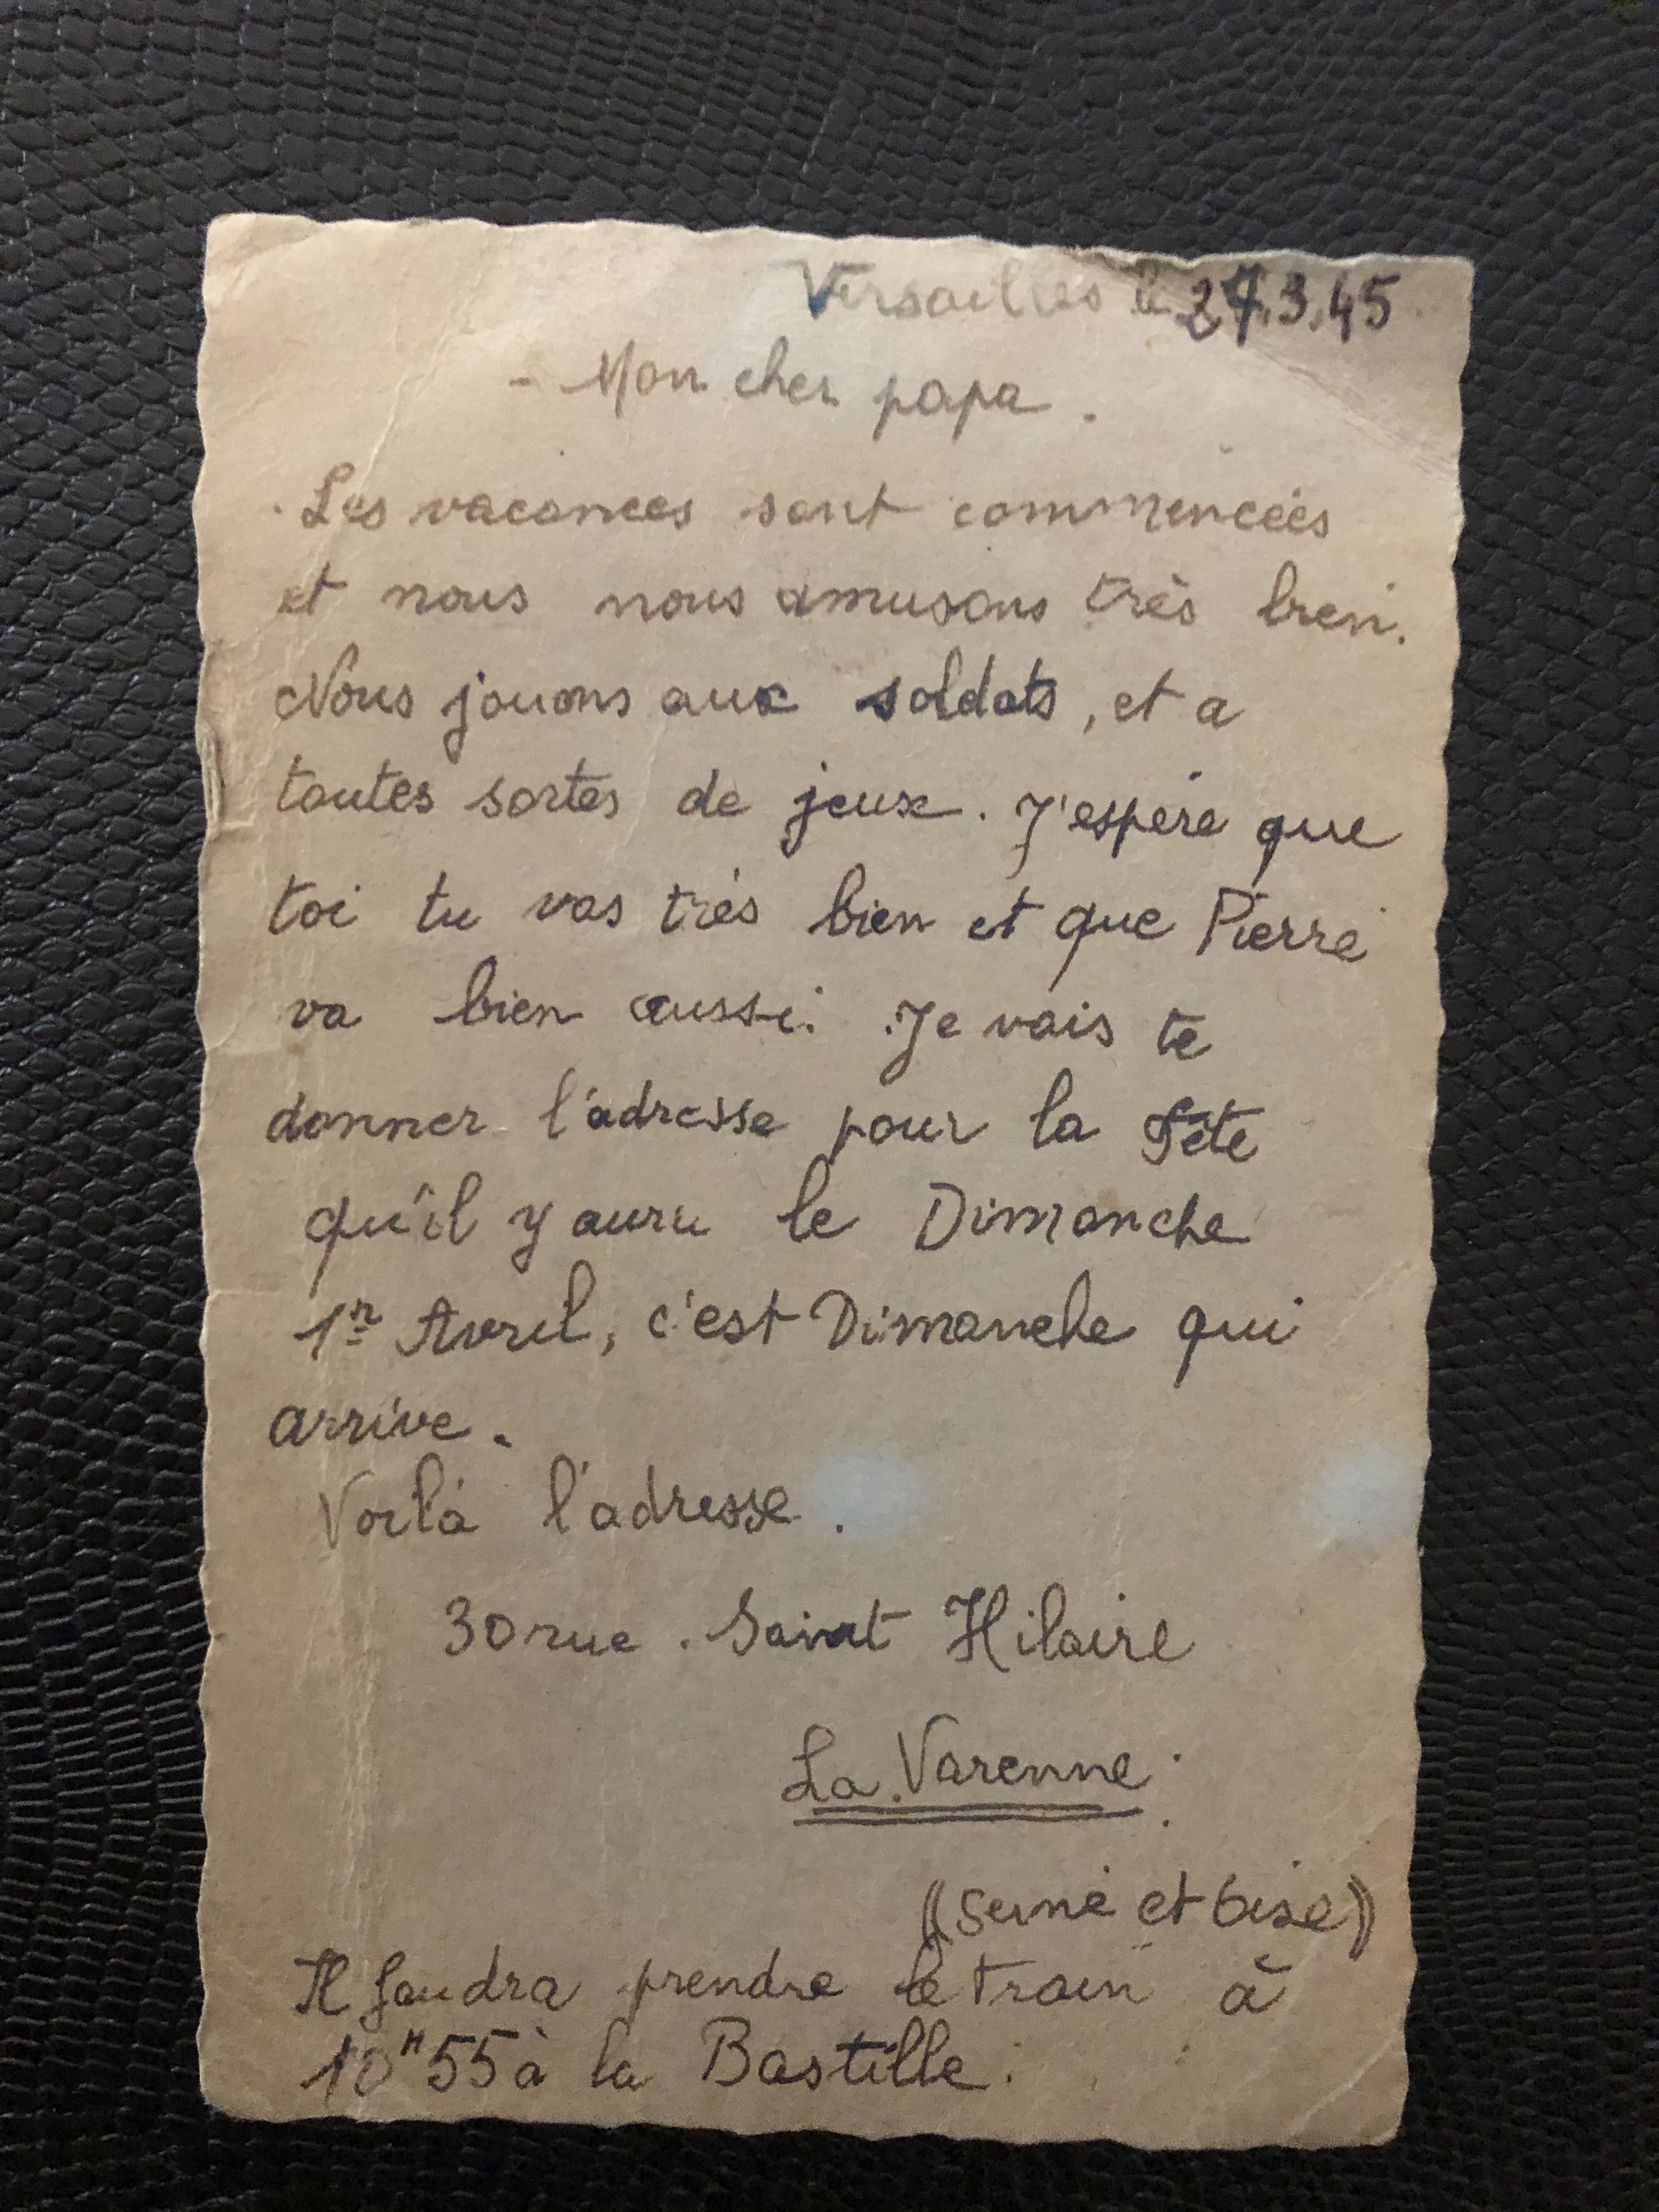 Versailles le 27.3.45
- Mon cher papa.
Les vacances sont commencées
et nous nous amusons très bien.
Nous jouons aux soldats, et a
toutes sortes de jeux. J'espère que
toi tu vas très bien et que Pierre
va bien aussi. Je vais te
donner l'adresse pour la Fête
qu'il y aura le Dimanche
1er Avril, c'est Dimanche qui
arrive.
Voilà l'adresse.
30 rue. Saint Hilaire
La Varenne.
(Seine et Oise)
Il faudra prendre le train à
10h55 à la Bastille.